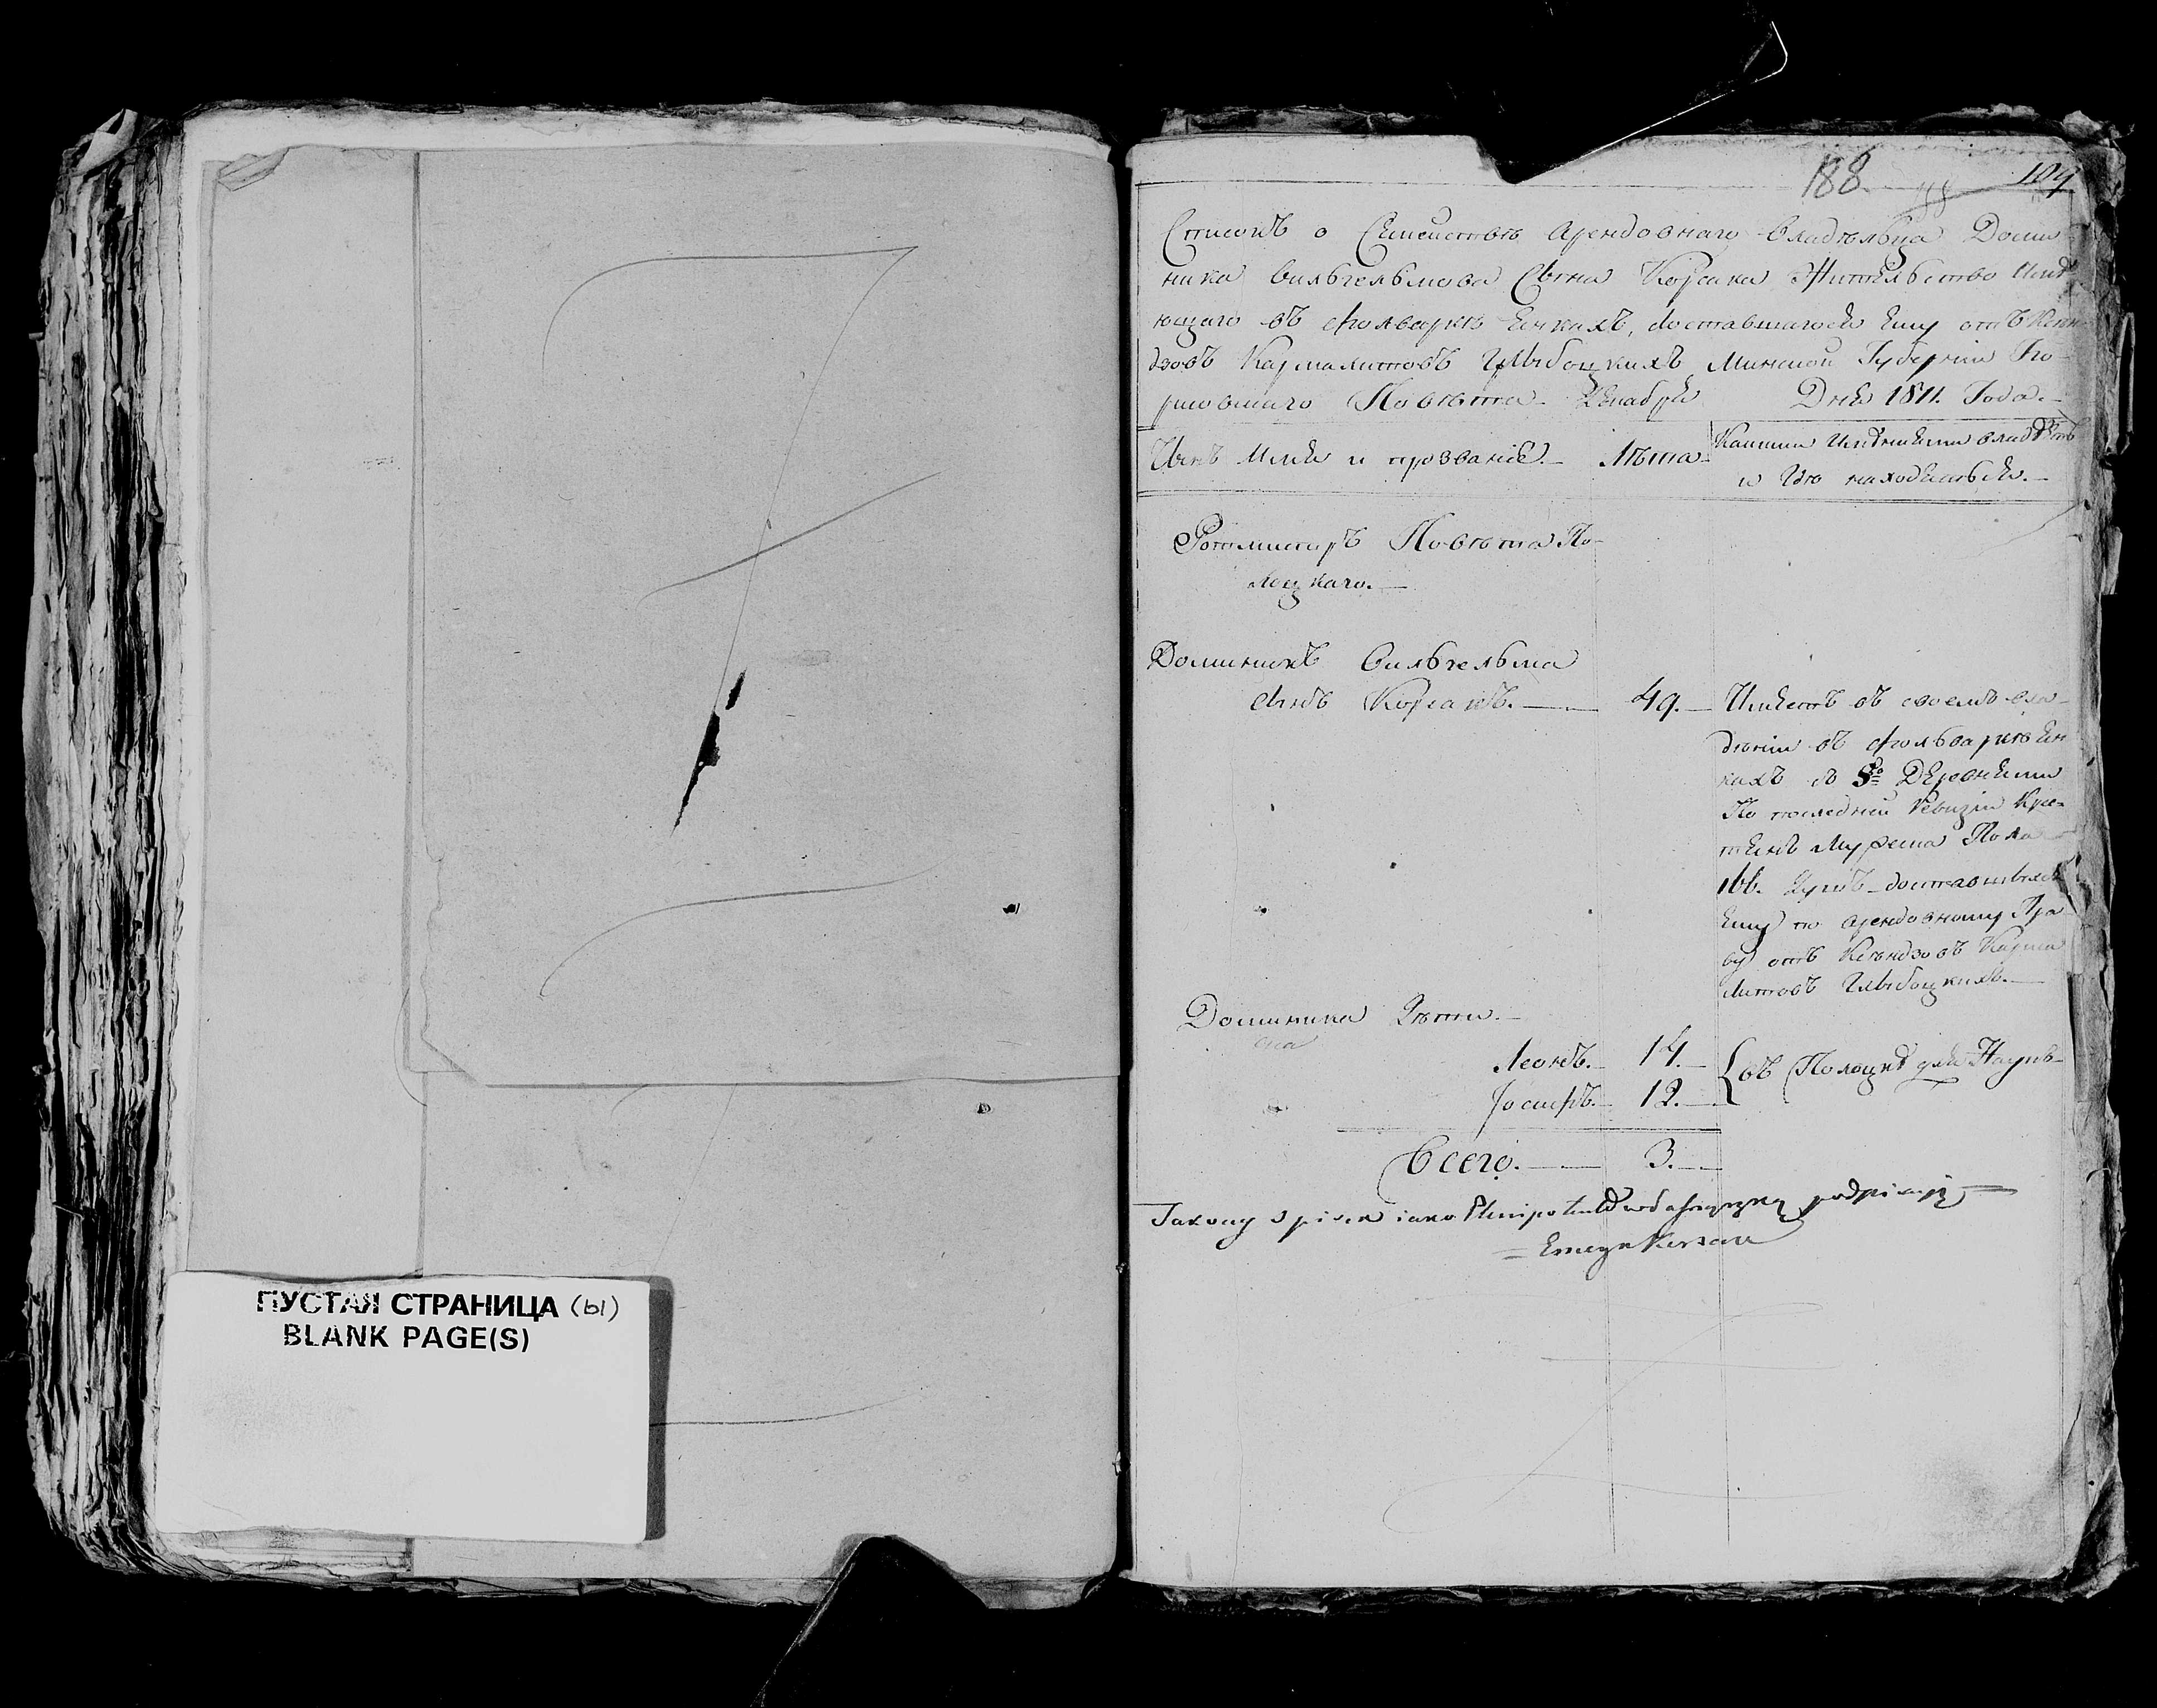 ПУСТАЯ СТРАНИЦА (ы)
BLANK PAGE(S)
188. 109
Списокъ о Семействѣ Арендовнаго владѣльца Доми-
ника вильгельмова Сына Корсака Жительство имѣ-
ющаго въ фольваркѣ доставшагося Ему отъ Ксен-
дзовъ Кармалитовъ Глыбоцкихъ Минской Губерніи Бо-
рисовскаго Повѣта. Декабря Дня 1811. Года.
Чинъ Имя и прозваніе. Лѣта Какими Имѣніями владѣетъ
и Гдѣ находятся.
Ротмистръ Повѣта По-
лоцкаго.
Доминикъ вильгельма
сынъ Корсакъ. 49. Имѣетъ въ своемъ вла-
дѣніи въ фольваркѣ
съ Деревнями
По последней Ревизіи Кре-
стьянъ Мужеска Пола
166. Душъ доставшихся
Ему по арендовному Пра-
ву отъ Ксендзовъ Карма
литовъ Глыбоцкихъ.
Доминика Дѣти.
Леонъ. 14. въ Полоцкѣ для Наукъ
Іосифъ. 12.
Всего. 3.
Takowy spisek iako Plenipotent podpisuję
Korsak